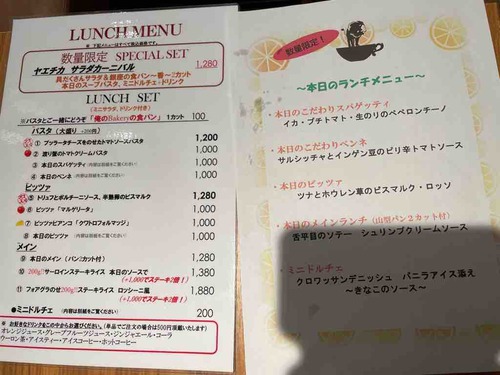 LUNCH MENU
※ 下記メニューはすべて税込価格です。
数量限定 SPECIAL SET
ヤエチカ サラダカーニバル 1,280
具だくさんサラダ＆銀座の食パン～香～2カット
本日のスープパスタ、ミニドルチェ・ドリンク
LUNCH SET
(ミニサラダ、ドリンク付き)
※パスタとご一緒にどうぞ「俺のBakeryの食パン」1カット 100
パスタ（大盛り +200円）
① ブッラータチーズをのせたトマトソースパスタ 1,200
② 渡り蟹のトマトクリームパスタ 1,000
3 本日のスパゲッティ (内容は別紙をご覧ください) 1,000
4 本日のペンネ (内容は別紙をご覧ください) 1,000
ピッツァ
⑤ トリュフとポルチーニソース、半熟卵のビスマルク 1,280
⑥ ピッツァ「マルゲリータ」 1,000
⑦ ピッツァビアンコ「クワトロフォルマッジ」 1,000
8 本日のピッツァ (内容は別紙をご覧ください) 1,000
メイン
9 本日のメイン (パン2カット付) 1,280
10 200gサーロインステーキライス 本日のソースで 1,380
(+1,000でステーキ2倍！)
11 フォアグラのせ200gステーキライス ロッシーニ風 1,880
(+1,000でステーキ2倍！)
●ミニドルチェ (内容は別紙をご覧ください) 200
※ お好きなドリンクをこの中からお選びください。(単品でご注文の場合は500円頂戴いたします)
オレンジジュース・グレープフルーツジュース・ジンジャエール・コーラ
ウーロン茶・アイスティー・アイスコーヒー・ホットコーヒー
数量限定！
～本日のランチメニュー～
・本日のこだわりスパゲッティ
イカ・プチトマト・生のりのペペロンチーノ
・本日のこだわりペンネ
サルシッチャとインゲン豆のピリ辛トマトソース
・本日のピッツァ
ツナとホウレン草のビスマルク・ロッソ
・本日のメインランチ（山型パン２カット付）
舌平目のソテー シュリンプクリームソース
・ミニドルチェ
クロワッサンデニッシュ バニラアイス添え
～きなこのソース～